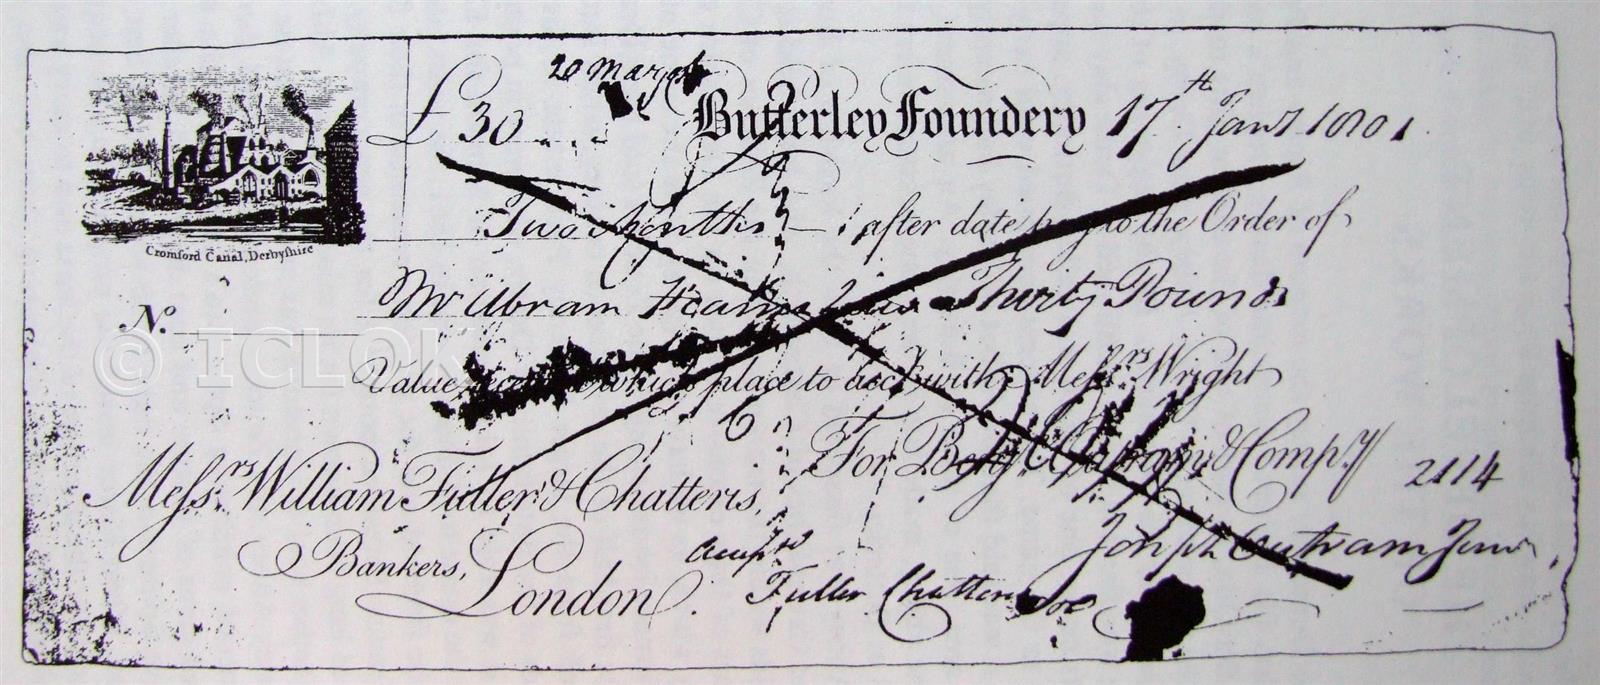 20 March
£ 30 Butterley Foundery 17th Jany 1801
Two Months after date pay to the Order of
Mr Abram Thirty Pounds
Cromford Canal, Derbyshire
No.
© ICLOK
Value which place to acct with Messrs Wright
For Benj & Compy 2114
Messrs William Fuller & Chatteris,
Joseph Outram Junr
Bankers, London.
Accepd
Fuller Chatteris